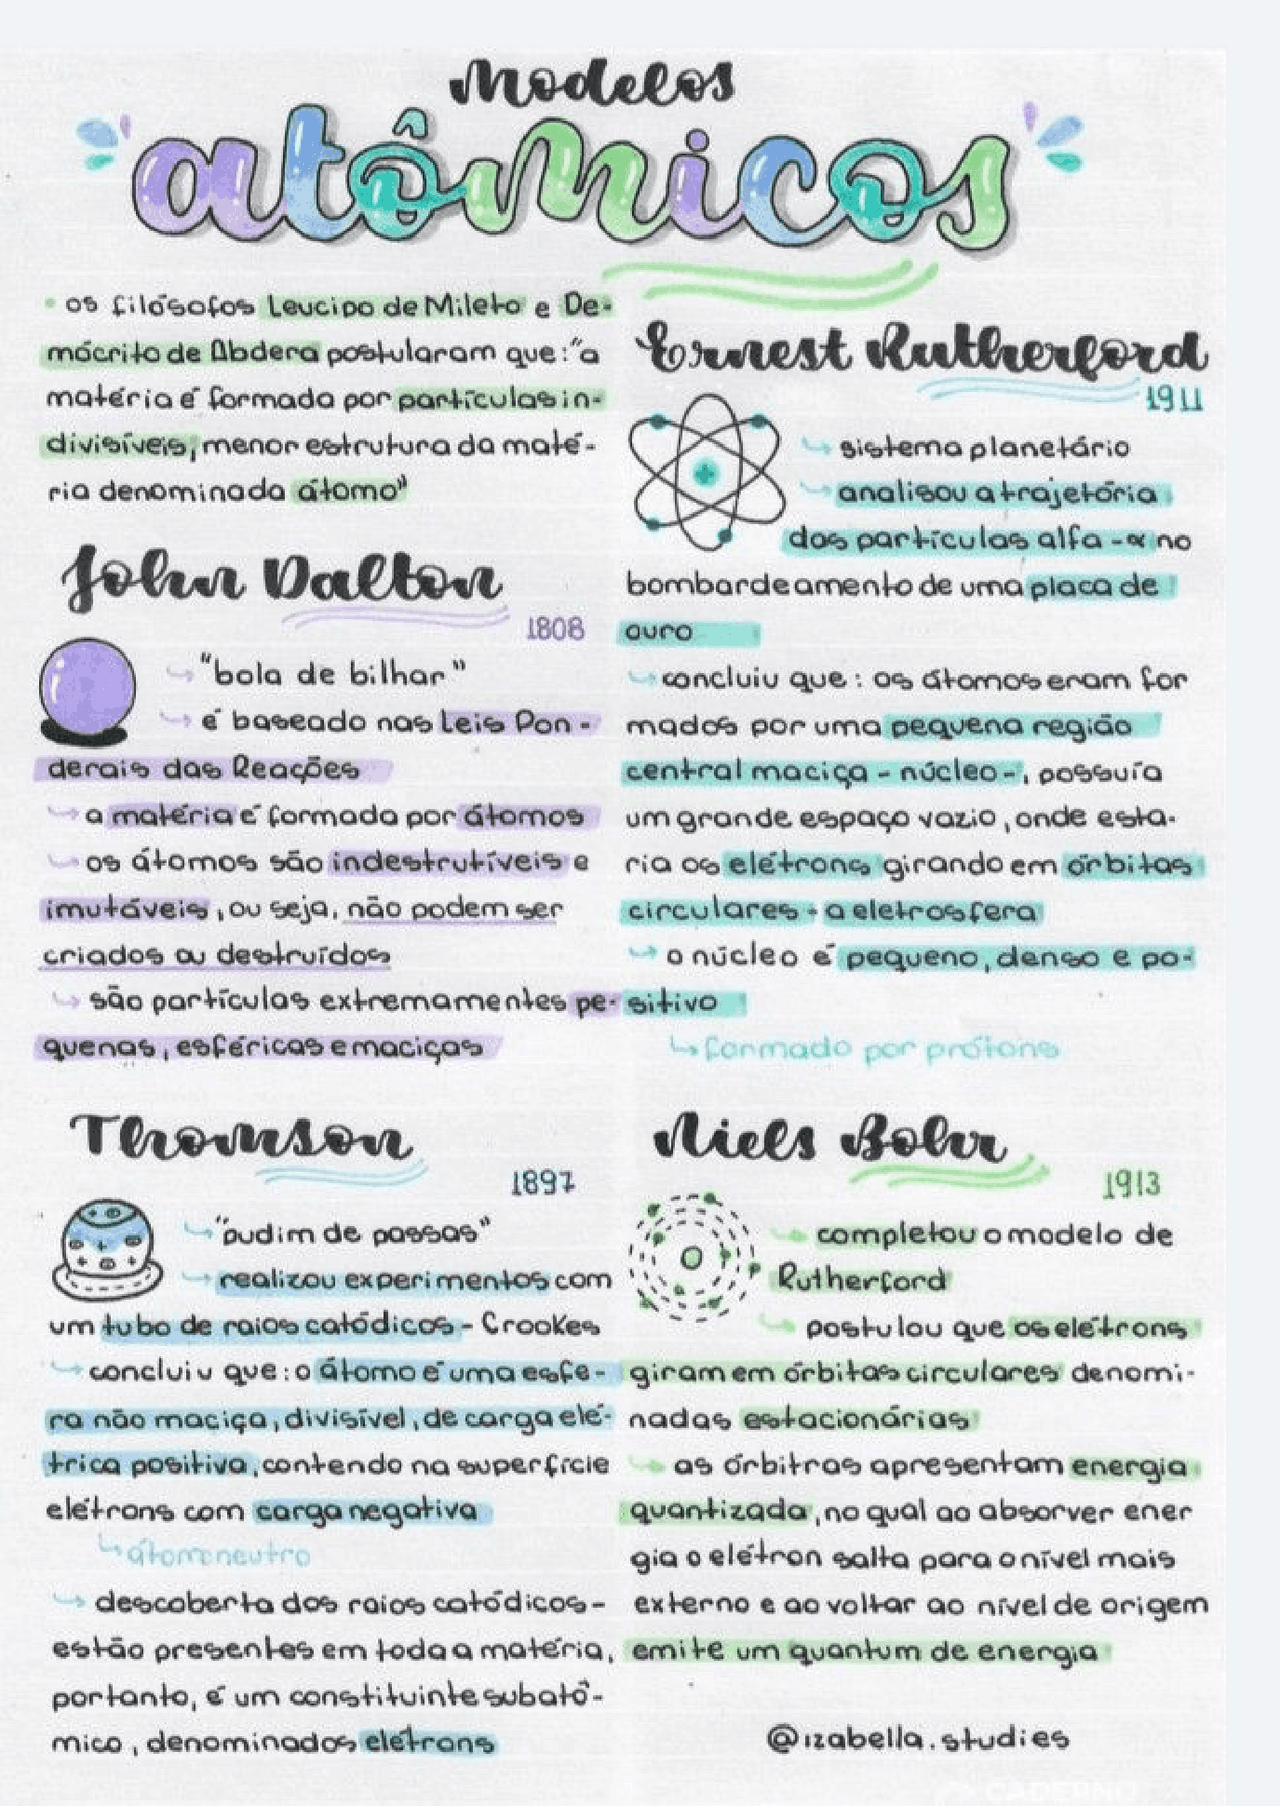 Modelos
atômicos
• os filósofos Leucipo de Mileto e De-
mócrito de Abdera postularam que: "a
matéria é formada por partículas in-
divisíveis, menor estrutura da maté-
ria denominada átomo"
John Dalton
1808
"bola de bilhar"
é baseado nas Leis Pon-
derais das Reações
a matéria é formada por átomos
os átomos são indestrutíveis e
imutáveis, ou seja, não podem ser
criados ou destruídos
são partículas extremamentes pe-
quenas, esféricas e maciças
Thomson
1897
"pudim de passas"
realizou experimentos com
um tubo de raios catódicos - Crookes
concluiu que: o átomo é uma esfe-
ra não maciça, divisível, de carga elé-
trica positiva, contendo na superfície
elétrons com carga negativa
átomo neutro
descoberta dos raios catódicos-
estão presentes em toda a matéria,
portanto, é um constituinte subatô-
mico, denominados elétrons
Ernest Rutherford
1911
sistema planetário
analisou a trajetória
das partículas alfa - α no
bombardeamento de uma placa de
ouro
concluiu que: os átomos eram for
mados por uma pequena região
central maciça - núcleo -, possuía
um grande espaço vazio, onde esta-
ria os elétrons girando em órbitas
circulares - a eletrosfera
o núcleo é pequeno, denso e po-
sitivo
formado por prótons
Niels Bohr
1913
completou o modelo de
Rutherford
postulou que os elétrons
giram em órbitas circulares denomi-
nadas estacionárias
as órbitras apresentam energia
quantizada, no qual ao absorver ener
gia o elétron salta para o nível mais
externo e ao voltar ao nível de origem
emite um quantum de energia
@izabella.studies
CADERNO